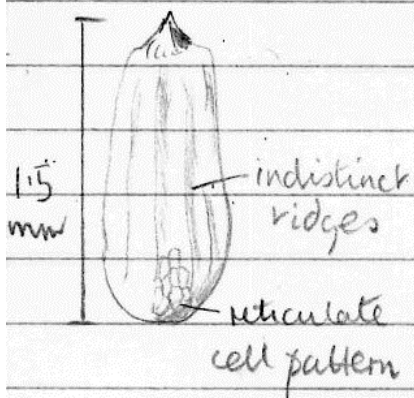 1.5
mm
indistinct
ridges
reticulate
cell pattern